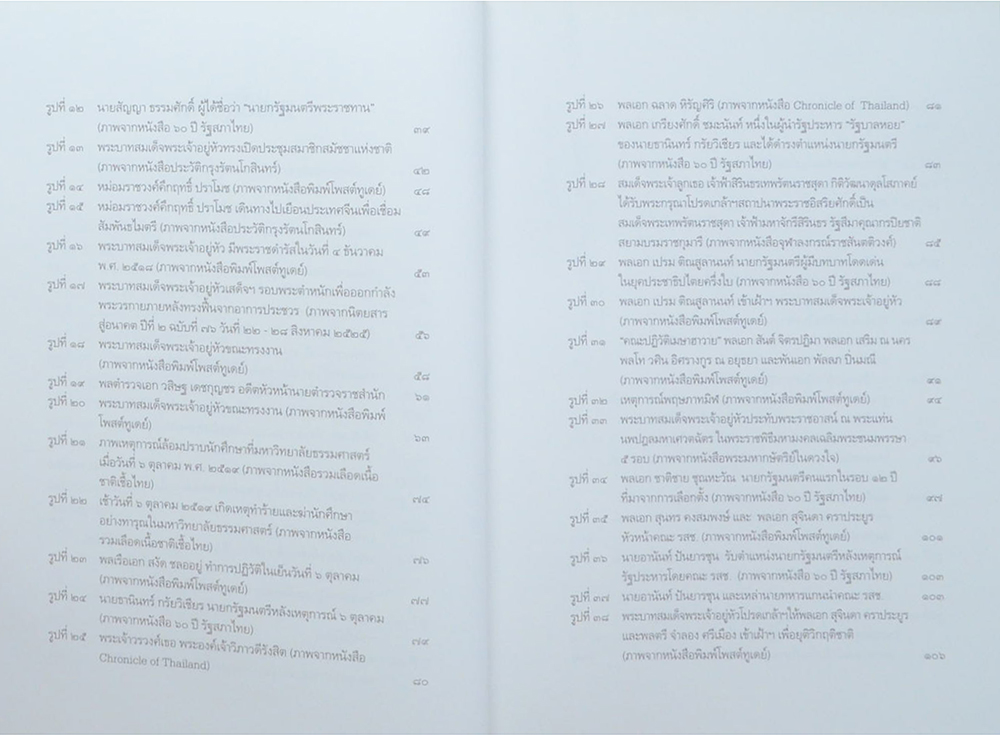 รูปที่ ๑๒ นายสัญญา ธรรมศักดิ์ ผู้ได้ชื่อว่า "นายกรัฐมนตรีพระราชทาน"
(ภาพจากหนังสือ ๖๐ ปี รัฐสภาไทย) ๓๙
รูปที่ ๑๓ พระบาทสมเด็จพระเจ้าอยู่หัวทรงเปิดประชุมสมาชิกสมัชชาแห่งชาติ
(ภาพจากหนังสือประวัติกรุงรัตนโกสินทร์) ๔๒
รูปที่ ๑๔ หม่อมราชวงศ์คึกฤทธิ์ ปราโมช (ภาพจากหนังสือพิมพ์โพสต์ทูเดย์) ๔๘
รูปที่ ๑๕ หม่อมราชวงศ์คึกฤทธิ์ ปราโมช เดินทางไปเยือนประเทศจีนเพื่อเชื่อม
สัมพันธไมตรี (ภาพจากหนังสือประวัติกรุงรัตนโกสินทร์) ๔๙
รูปที่ ๑๖ พระบาทสมเด็จพระเจ้าอยู่หัว มีพระราชดำรัสในวันที่ ๔ ธันวาคม
พ.ศ. ๒๕๑๘ (ภาพจากหนังสือพิมพ์โพสต์ทูเดย์) ๕๓
รูปที่ ๑๗ พระบาทสมเด็จพระเจ้าอยู่หัวเสด็จฯ รอบพระตำหนักเพื่อออกกำลัง
พระวรกายภายหลังทรงฟื้นจากอาการประชวร (ภาพจากนิตยสาร
สู่อนาคต ปีที่ ๒ ฉบับที่ ๗๖ วันที่ ๒๒ - ๒๘ สิงหาคม ๒๕๒๕) ๕๖
รูปที่ ๑๘ พระบาทสมเด็จพระเจ้าอยู่หัวขณะทรงงาน
(ภาพจากหนังสือพิมพ์โพสต์ทูเดย์) ๕๘
รูปที่ ๑๙ พลตำรวจเอก วสิษฐ เดชกุญชร อดีตหัวหน้านายตำรวจราชสำนัก ๖๑
รูปที่ ๒๐ พระบาทสมเด็จพระเจ้าอยู่หัวขณะทรงงาน (ภาพจากหนังสือพิมพ์
โพสต์ทูเดย์) ๖๓
รูปที่ ๒๑ ภาพเหตุการณ์ล้อมปราบนักศึกษาที่มหาวิทยาลัยธรรมศาสตร์
เมื่อวันที่ ๖ ตุลาคม พ.ศ. ๒๕๑๙ (ภาพจากหนังสือรวมเลือดเนื้อ
ชาติเชื้อไทย) ๗๔
รูปที่ ๒๒ เช้าวันที่ ๖ ตุลาคม ๒๕๑๙ เกิดเหตุทำร้ายและฆ่านักศึกษา
อย่างทารุณในมหาวิทยาลัยธรรมศาสตร์ (ภาพจากหนังสือ
รวมเลือดเนื้อชาติเชื้อไทย) ๗๖
รูปที่ ๒๓ พลเรือเอก สงัด ชลออยู่ ทำการปฏิวัติในเย็นวันที่ ๖ ตุลาคม
(ภาพจากหนังสือพิมพ์โพสต์ทูเดย์) ๗๗
รูปที่ ๒๔ นายธานินทร์ กรัยวิเชียร นายกรัฐมนตรีหลังเหตุการณ์ ๖ ตุลาคม
(ภาพจากหนังสือ ๖๐ ปี รัฐสภาไทย) ๗๙
รูปที่ ๒๕ พระเจ้าวรวงศ์เธอ พระองค์เจ้าวิภาวดีรังสิต (ภาพจากหนังสือ
Chronicle of Thailand) ๘๐
รูปที่ ๒๖ พลเอก ฉลาด หิรัญศิริ (ภาพจากหนังสือ Chronicle of Thailand) ๘๑
รูปที่ ๒๗ พลเอก เกรียงศักดิ์ ชมะนันท์ หนึ่งในผู้นำรัฐประหาร "รัฐบาลหอย"
ของนายธานินทร์ กรัยวิเชียร และได้ดำรงตำแหน่งนายกรัฐมนตรี
(ภาพจากหนังสือ ๖๐ ปี รัฐสภาไทย) ๘๓
รูปที่ ๒๘ สมเด็จพระเจ้าลูกเธอ เจ้าฟ้าสิรินธรเทพรัตนราชสุดา กิติวัฒนาดุลโสภาคย์
ได้รับพระกรุณาโปรดเกล้าฯสถาปนาพระราชอิสริยศักดิ์เป็น
สมเด็จพระเทพรัตนราชสุดา เจ้าฟ้ามหาจักรีสิรินธร รัฐสีมาคุณากรปิยชาติ
สยามบรมราชกุมารี (ภาพจากหนังสือจุฬาลงกรณ์ราชสันตติวงศ์) ๘๕
รูปที่ ๒๙ พลเอก เปรม ติณสูลานนท์ นายกรัฐมนตรีผู้มีบทบาทโดดเด่น
ในยุคประชาธิปไตยครึ่งใบ (ภาพจากหนังสือ ๖๐ ปี รัฐสภาไทย) ๘๘
รูปที่ ๓๐ พลเอก เปรม ติณสูลานนท์ เข้าเฝ้าฯ พระบาทสมเด็จพระเจ้าอยู่หัว
(ภาพจากหนังสือพิมพ์โพสต์ทูเดย์) ๘๙
รูปที่ ๓๑ "คณะปฏิวัติเมษาฮาวาย" พลเอก สันต์ จิตรปฏิมา พลเอก เสริม ณ นคร
พลโท วศิน อิศรางกูร ณ อยุธยา และพันเอก พัลลภ ปิ่นมณี
(ภาพจากหนังสือพิมพ์โพสต์ทูเดย์) ๙๑
รูปที่ ๓๒ เหตุการณ์พฤษภาทมิฬ (ภาพจากหนังสือพิมพ์โพสต์ทูเดย์) ๙๔
รูปที่ ๓๓ พระบาทสมเด็จพระเจ้าอยู่หัวประทับพระราชอาสน์ ณ พระแท่น
นพปฎลมหาเศวตฉัตร ในพระราชพิธีมหามงคลเฉลิมพระชนมพรรษา
๕ รอบ (ภาพจากหนังสือพระมหากษัตริย์ในดวงใจ) ๙๖
รูปที่ ๓๔ พลเอก ชาติชาย ชุณหะวัณ นายกรัฐมนตรีคนแรกในรอบ ๑๒ ปี
ที่มาจากการเลือกตั้ง (ภาพจากหนังสือ ๖๐ ปี รัฐสภาไทย) ๙๗
รูปที่ ๓๕ พลเอก สุนทร คงสมพงษ์ และ พลเอก สุจินดา คราประยูร
หัวหน้าคณะ รสช. (ภาพจากหนังสือพิมพ์โพสต์ทูเดย์) ๑๐๑
รูปที่ ๓๖ นายอานันท์ ปันยารชุน รับตำแหน่งนายกรัฐมนตรีหลังเหตุการณ์
รัฐประหารโดยคณะ รสช. (ภาพจากหนังสือ ๖๐ ปี รัฐสภาไทย) ๑๐๓
รูปที่ ๓๗ นายอานันท์ ปันยารชุน และเหล่านายทหารแกนนำคณะ รสช. ๑๐๓
รูปที่ ๓๘ พระบาทสมเด็จพระเจ้าอยู่หัวโปรดเกล้าฯให้พลเอก สุจินดา คราประยูร
และพลตรี จำลอง ศรีเมือง เข้าเฝ้าฯ เพื่อยุติวิกฤติชาติ
(ภาพจากหนังสือพิมพ์โพสต์ทูเดย์) ๑๐๖